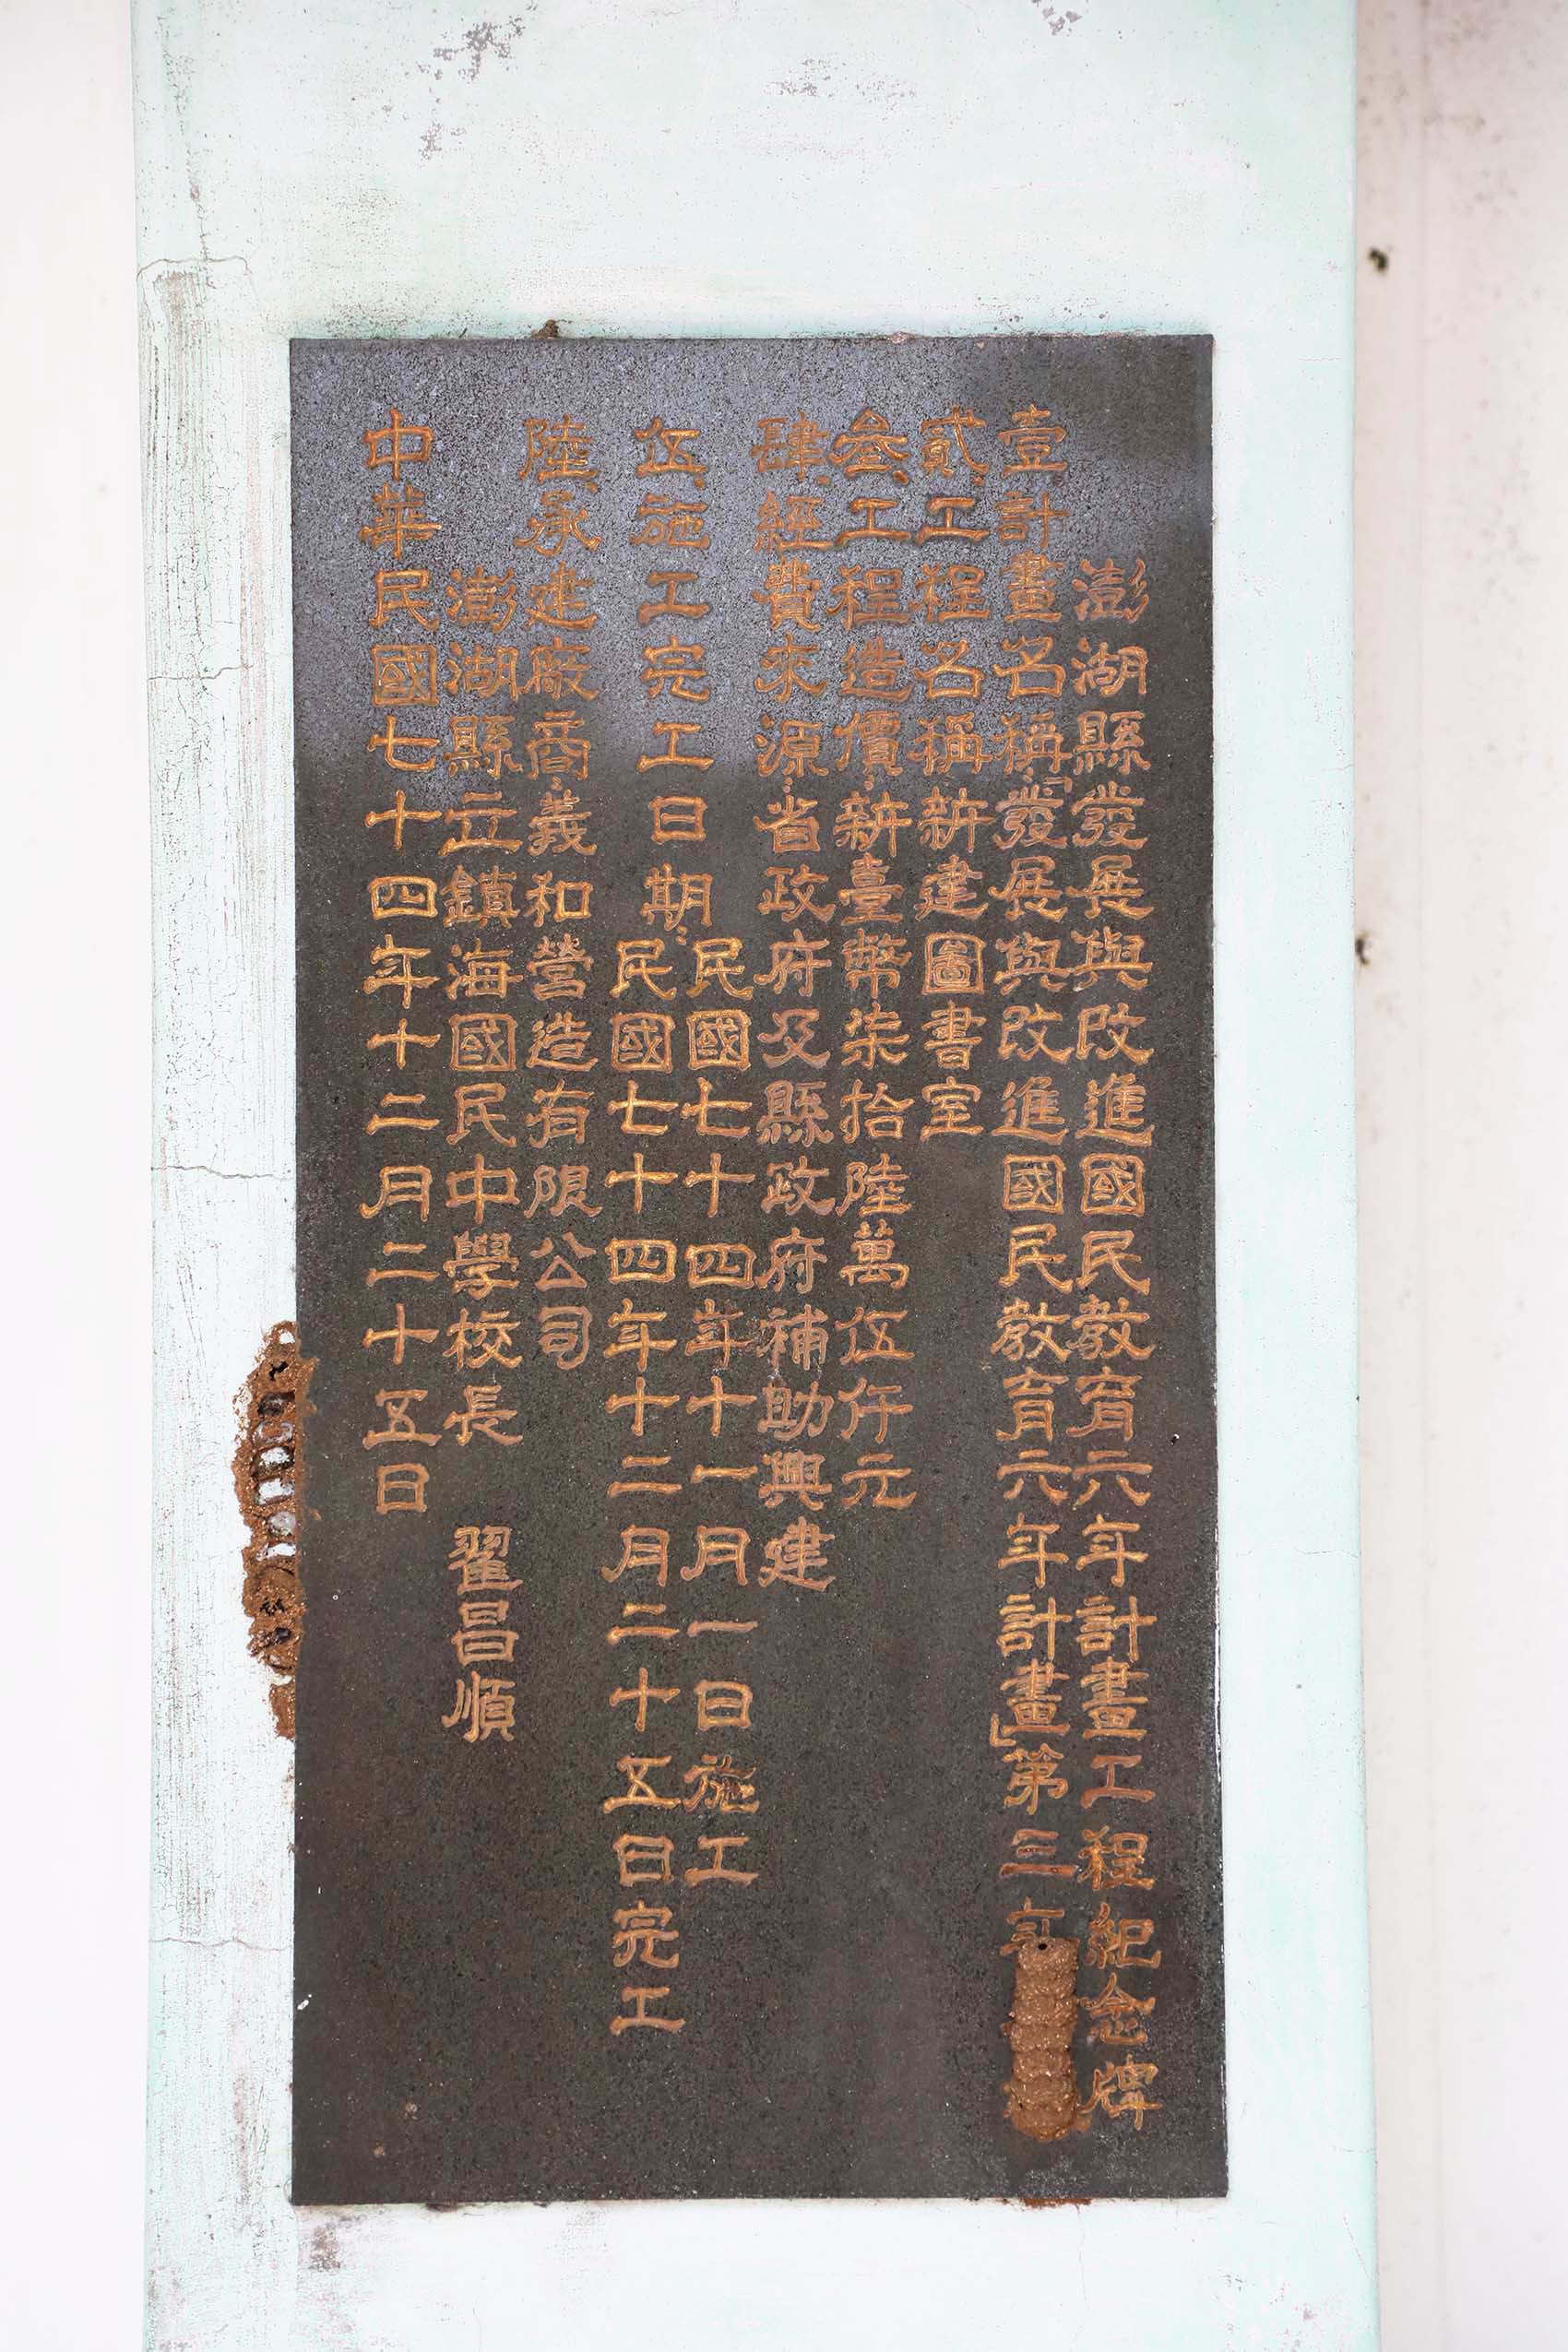 澎湖縣發展與改進國民教育六年計畫工程紀念牌
壹計畫名稱:「發展與改進國民教育六年計畫」第三年
貳、工程名稱:新建圖書室
叁、工程造價:新臺幣柒拾陸萬伍仟元
肆、經費來源:省政府及縣政府補助興建
伍、施工完工日期:民國七十四年十一月一日施工
民國七十四年十二月二十五日完工
陸、承建廠商:義和營造有限公司
澎湖縣立鎮海國民中學校長 翟昌順
中華民國七十四年十二月二十五日